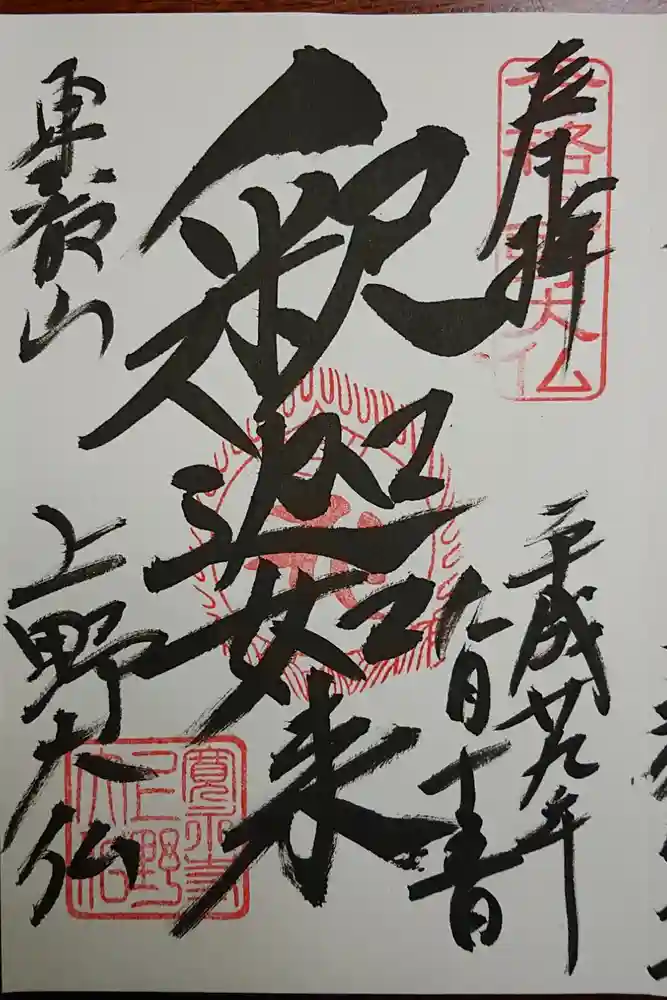 奉拝
合格大仏
平成廿九年
八月十一日
釈迦如来
東叡山
上野大仏
寛永寺
上野
大仏